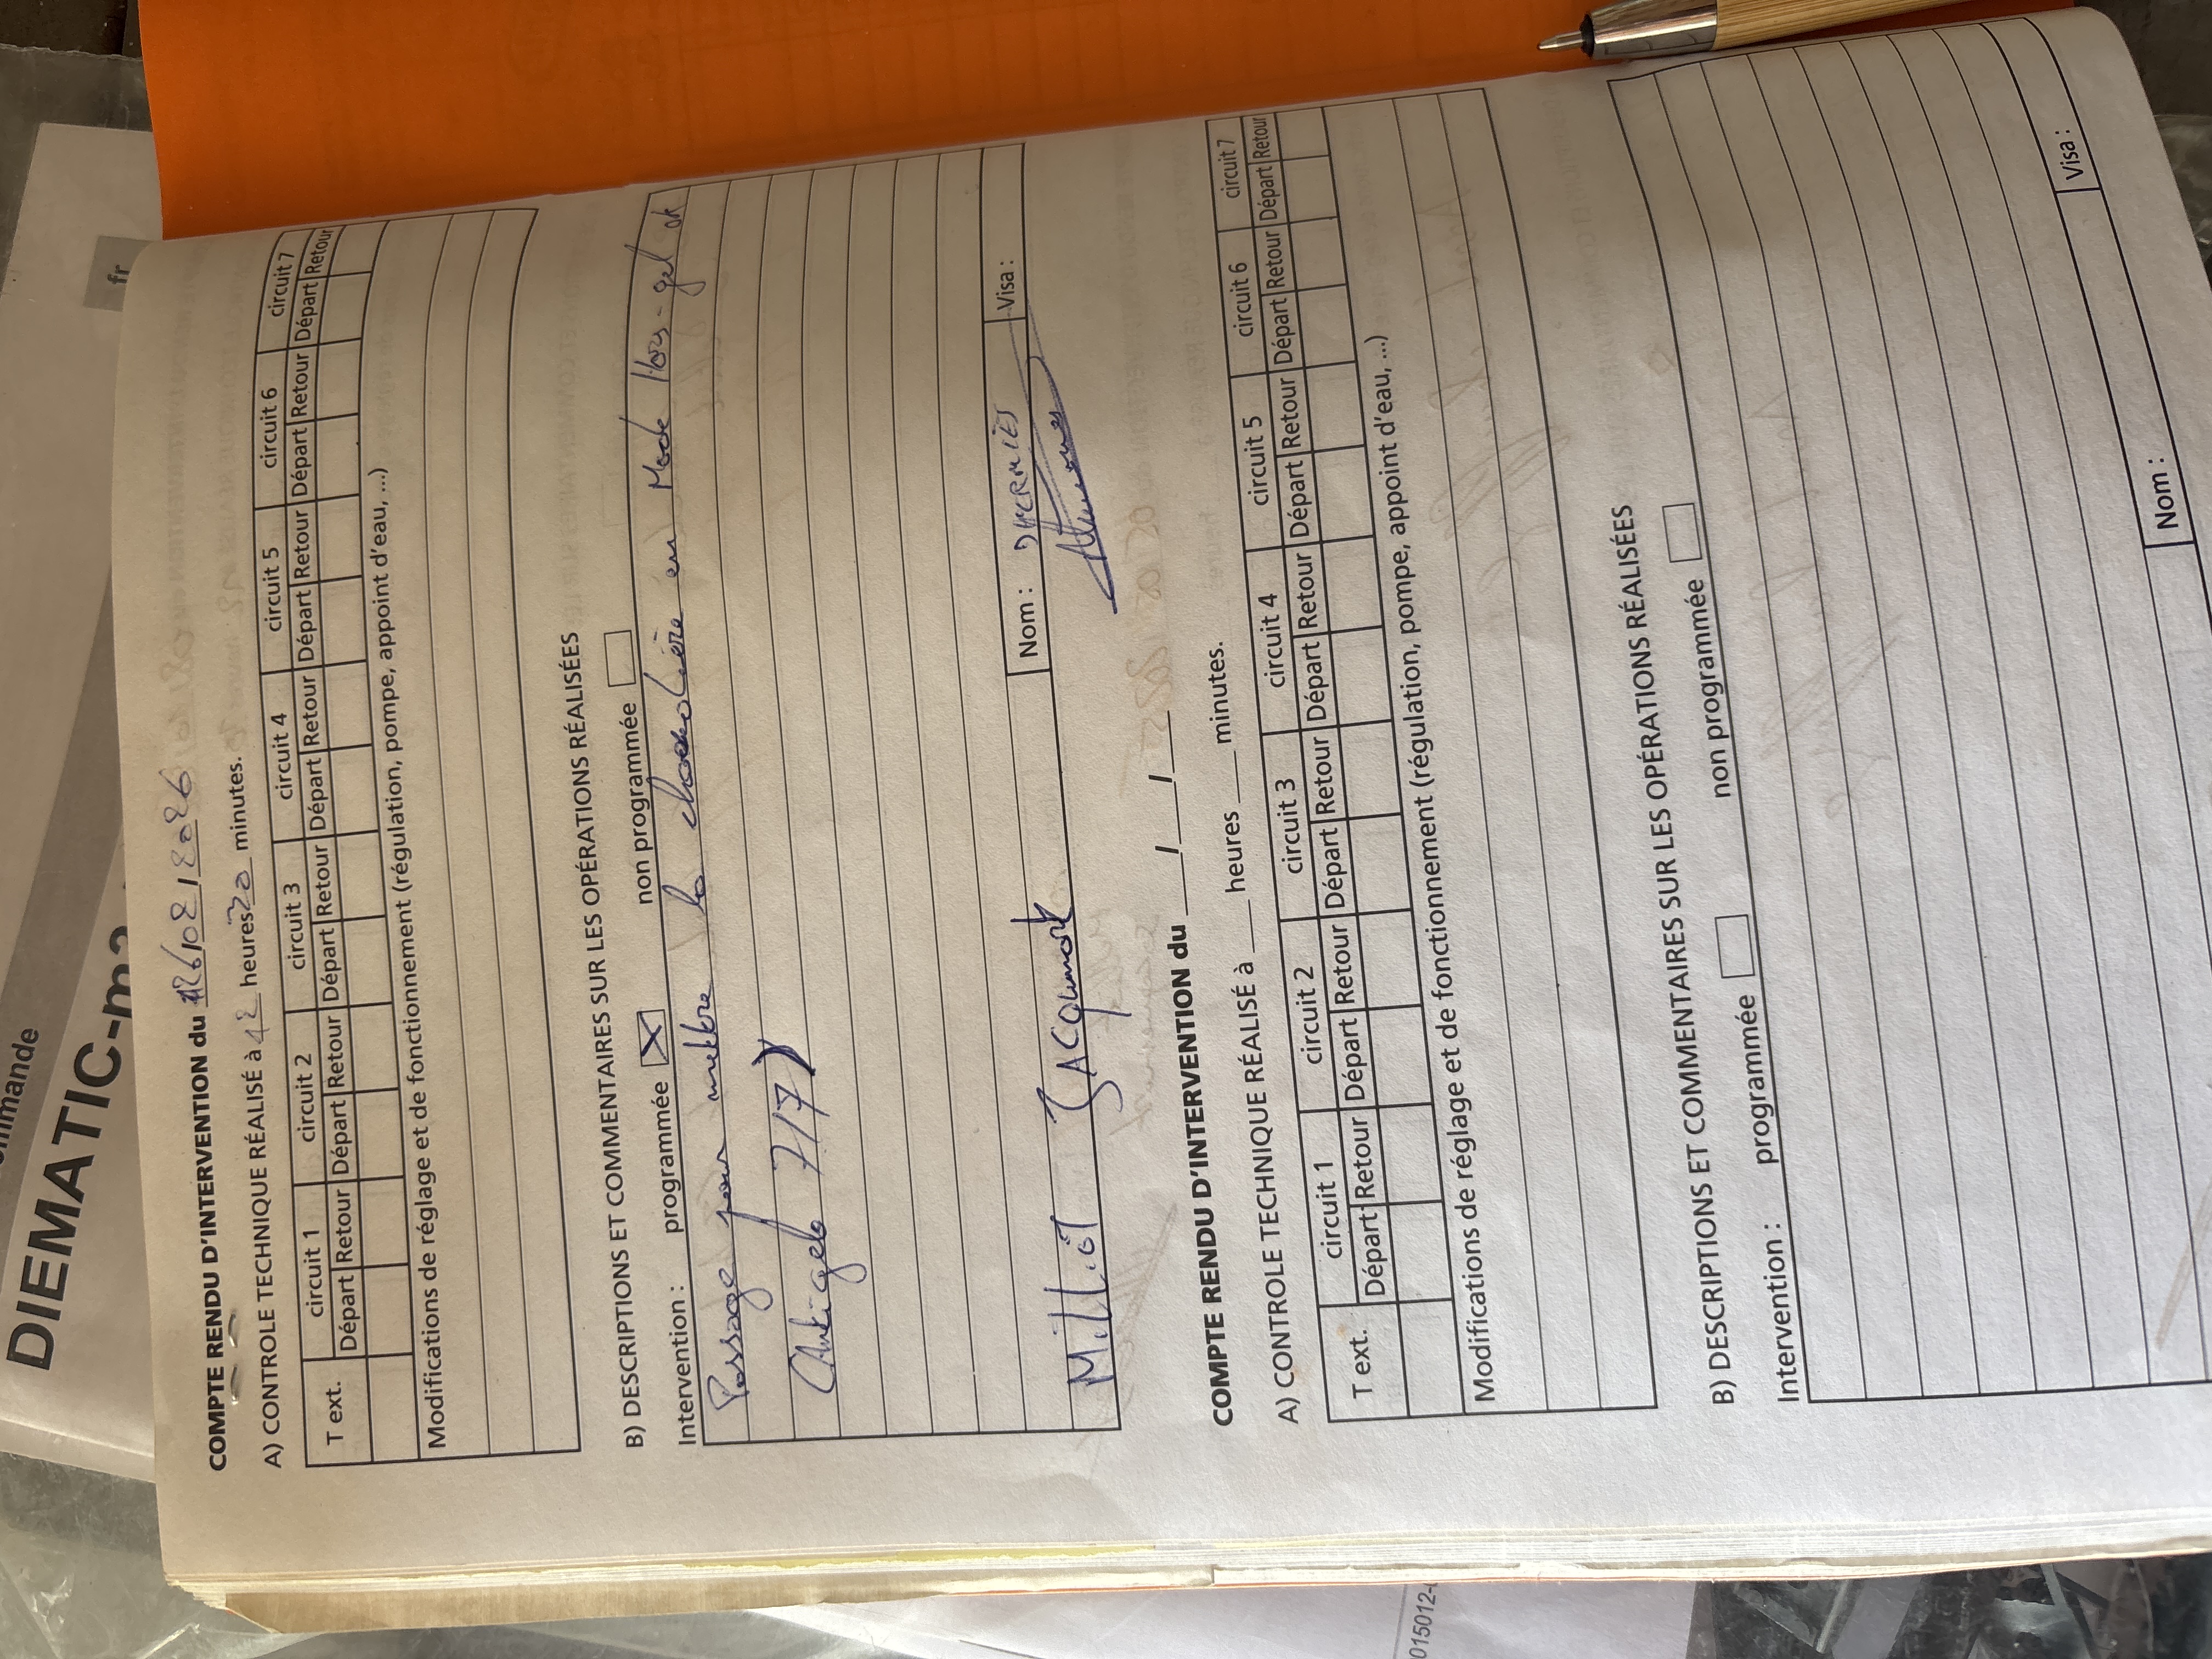 ommande
DIEMATIC-m3
fr
COMPTE RENDU D'INTERVENTION du 26/02/2026
A) CONTROLE TECHNIQUE RÉALISÉ à 12 heures 20 minutes.
T ext. circuit 1 circuit 2 circuit 3 circuit 4 circuit 5 circuit 6 circuit 7
Départ Retour Départ Retour Départ Retour Départ Retour Départ Retour Départ Retour Départ Retour
Modifications de réglage et de fonctionnement (régulation, pompe, appoint d'eau, ...)
B) DESCRIPTIONS ET COMMENTAIRES SUR LES OPÉRATIONS RÉALISÉES
Intervention : programmée X non programmée
Passage pour mettre la chaudière en Mode Hors-gel ok
(Antigel 7/7)
Nom : Visa :
Milliot JACqumart
COMPTE RENDU D'INTERVENTION du ___/___/___
A) CONTROLE TECHNIQUE RÉALISÉ à ___ heures ___ minutes.
T ext. circuit 1 circuit 2 circuit 3 circuit 4 circuit 5 circuit 6 circuit 7
Départ Retour Départ Retour Départ Retour Départ Retour Départ Retour Départ Retour Départ Retour
Modifications de réglage et de fonctionnement (régulation, pompe, appoint d'eau, ...)
B) DESCRIPTIONS ET COMMENTAIRES SUR LES OPÉRATIONS RÉALISÉES
Intervention : programmée non programmée
Nom : Visa :
015012-